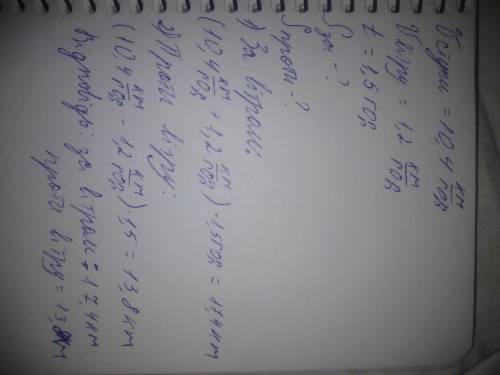 Vсути = 10,4 км/год
Vвітру = 1,2 км/год
t = 1,5 год
S за - ?
S проти - ?
1) За вітром:
(10,4 км/год + 1,2 км/год) · 1,5 год = 17,4 км
2) Проти вітру:
(10,4 км/год - 1,2 км/год) · 1,5 = 13,8 км
Відповідь: за вітром = 17,4 км
проти вітру = 13,8 км